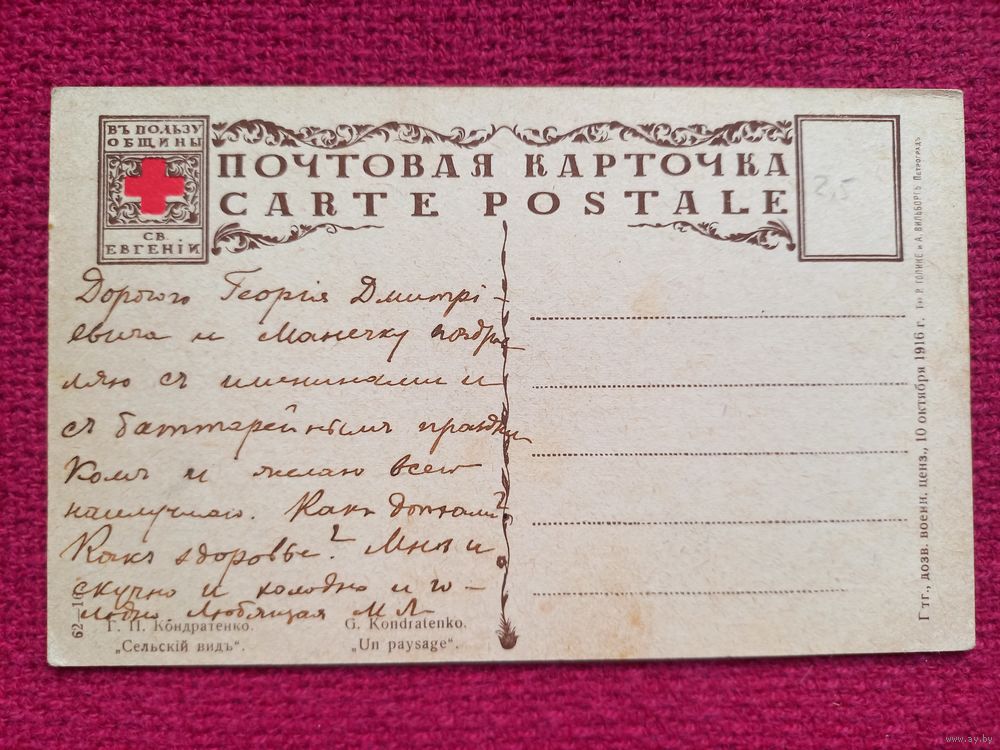 ВЪ ПОЛЬЗУ
ОБЩИНЫ
СВ.
ЕВГЕНІИ
ПОЧТОВАЯ КАРТОЧКА
CARTE POSTALE
2,5
Дорогого Георгія Дмитрі-
евича и Манечку поздрав
ляю съ именинами и
съ баттарейнымъ праздни
комъ и желаю всего
наилучшаго. Какъ доехали?
Какъ здоровье? Мнѣ и
скучно и холодно и го-
лодно Любящая М Л
62—1
Г. П. Кондратенко.
„Сельскій видъ“.
G. Kondratenko.
„Un paysage“.
Т-во Р. ГОЛИКЕ и А. ВИЛЬБОРГЪ. ПЕТРОГРАДЪ
Г тг., дозв. военн. ценз., 10 октября 1916 г.
www.ay.by